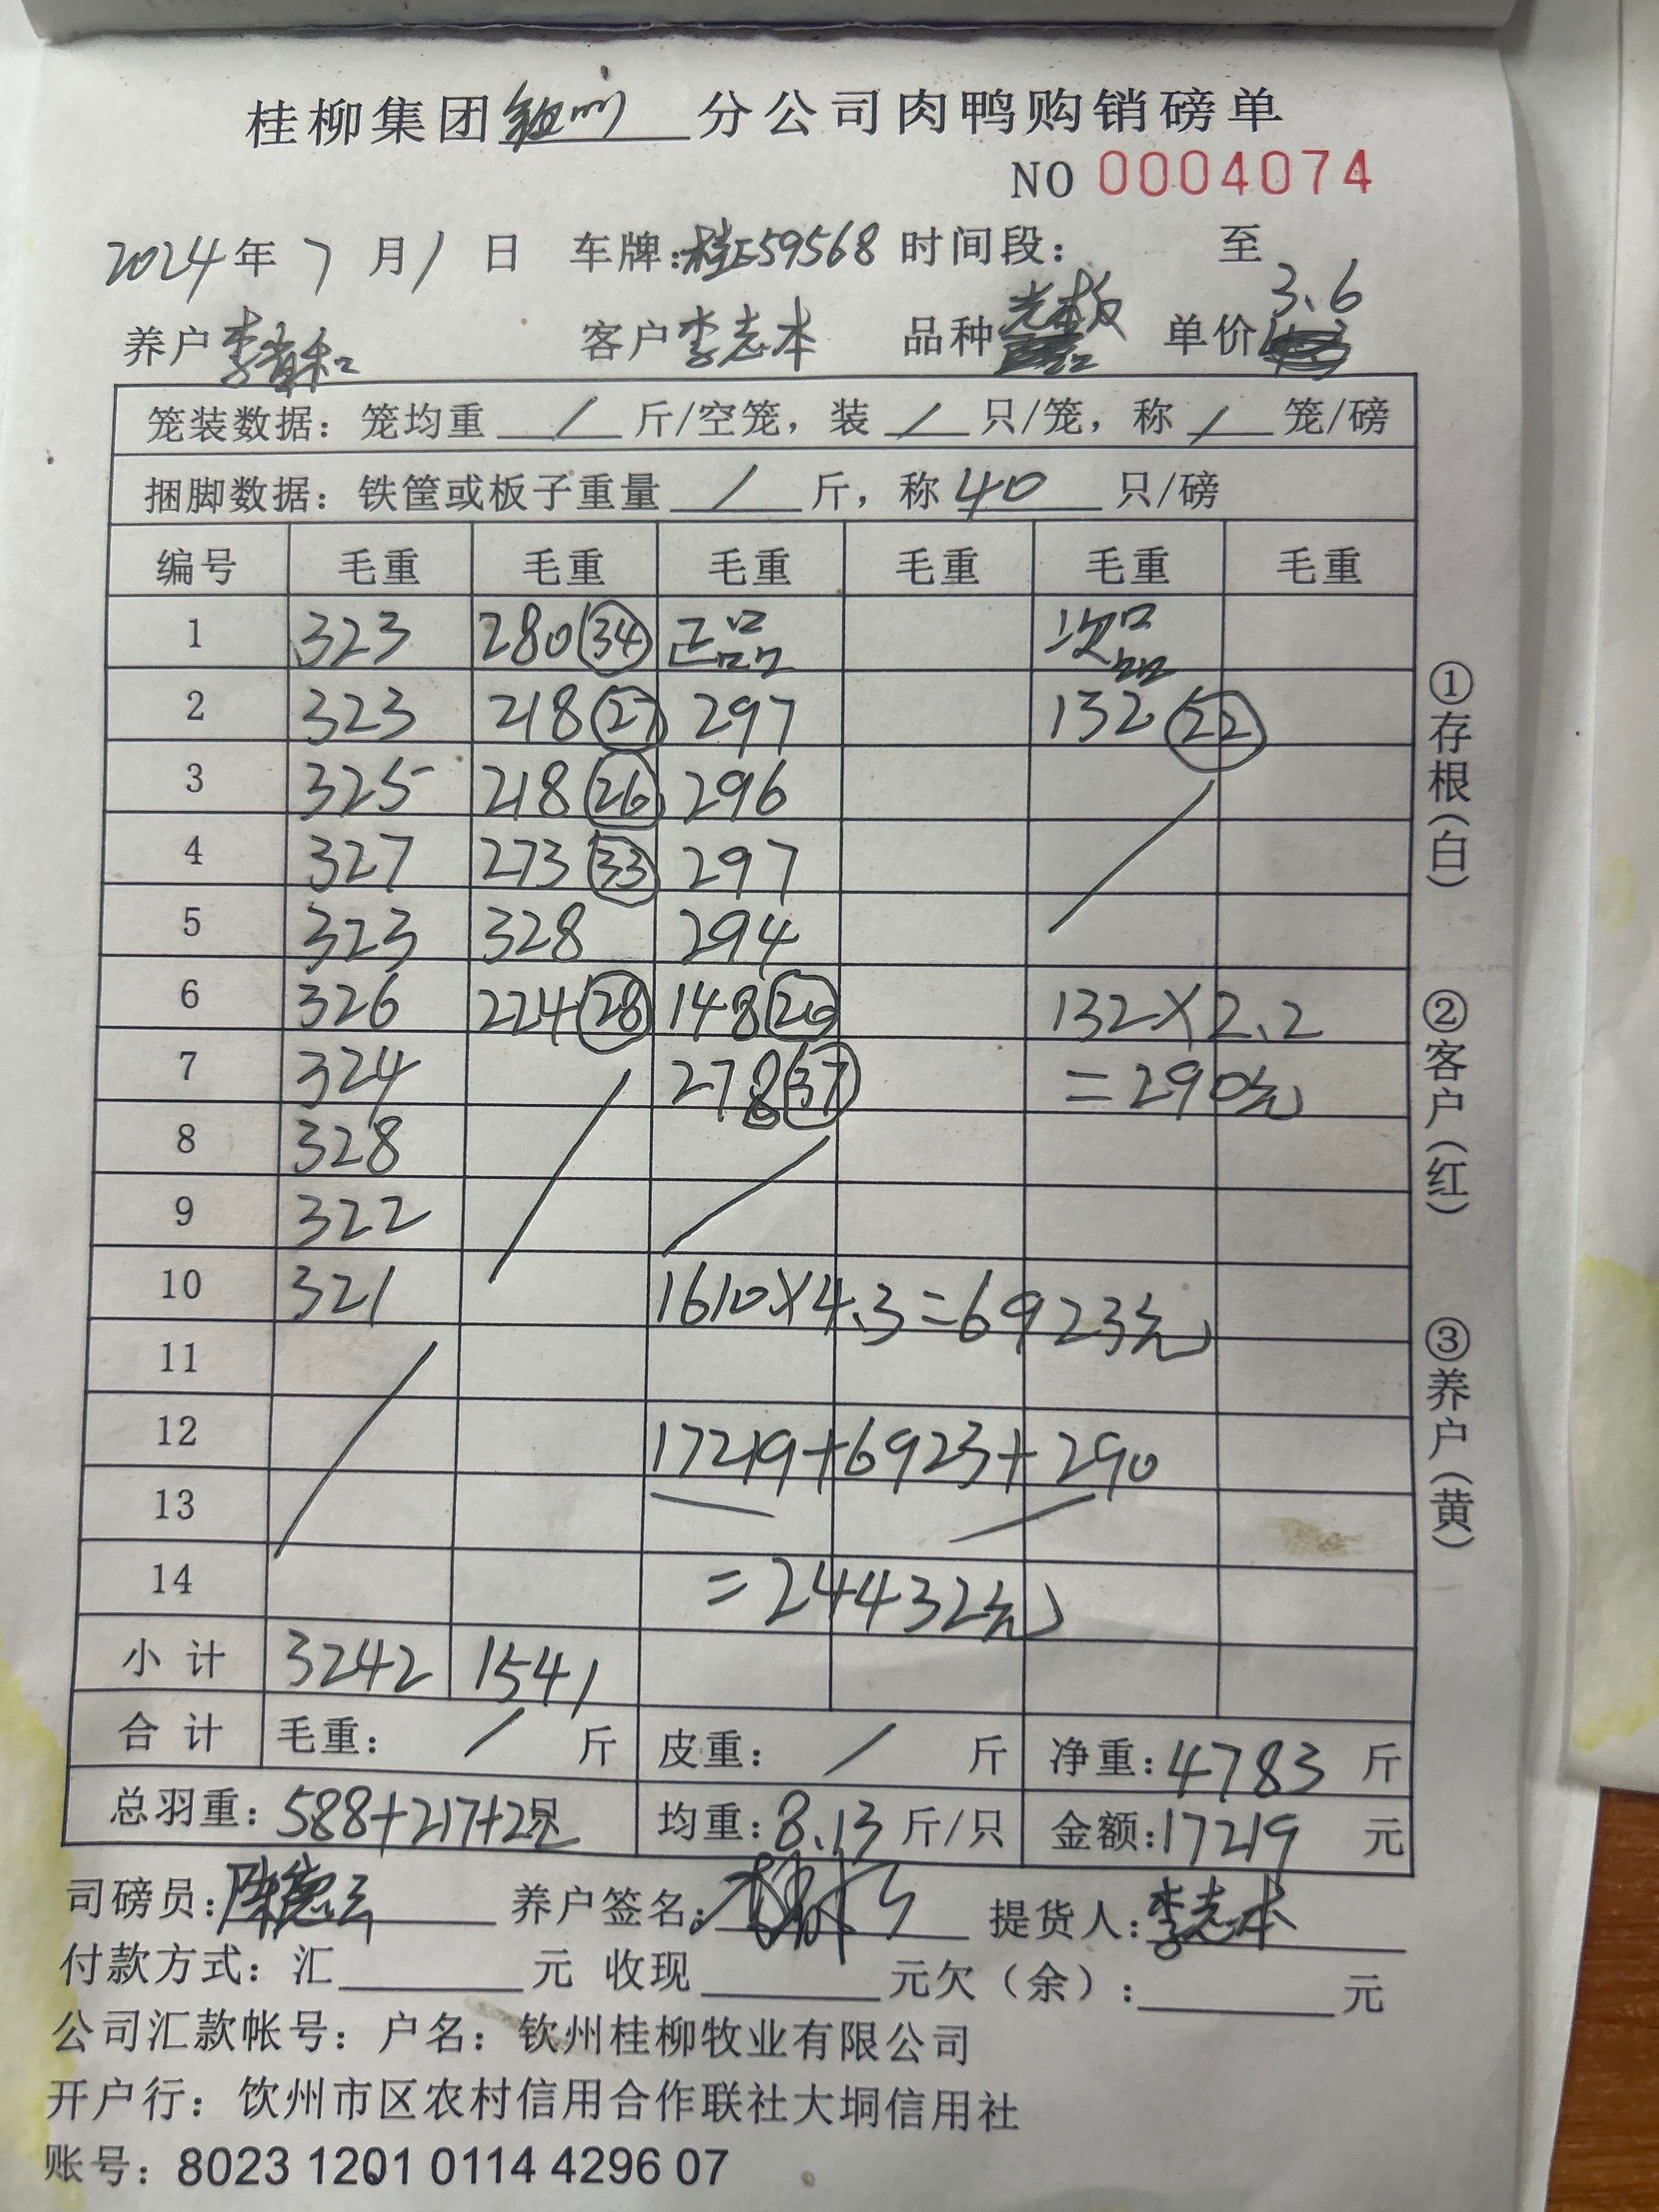 桂柳集团钦州分公司肉鸭购销磅单
NO 0004074
2024年7月1日 车牌:桂E59568 时间段: 至
3.6
养户 李 和 客户 李志本 品种 单价
笼装数据:笼均重 / 斤/空笼,装 / 只/笼,称 / 笼/磅
捆脚数据:铁筐或板子重量 / 斤,称 40 只/磅
编号 毛重 毛重 毛重 毛重 毛重 毛重
1 323 280(34) 正品 次品
2 323 218(27) 297 132(22)
3 325 218(26) 296
4 327 273(33) 297
5 323 328 294
6 326 224(28) 148(20) 132×2.2
7 324 278(37) =290元
8 328
9 322
10 321 1610×4.3=6923元
11
12 17219+6923+290
13
14 =24432元
小计 3242 1541
合计 毛重: / 斤 皮重: / 斤 净重:4783 斤
总羽重:588+217+22只 均重:8.13斤/只 金额:17219 元
司磅员: 养户签名: 提货人:李志本
付款方式:汇 元 收现 元欠(余): 元
公司汇款帐号:户名:钦州桂柳牧业有限公司
开户行:钦州市区农村信用合作联社大垌信用社
账号:8023 1201 0114 4296 07
①存根(白)
②客户(红)
③养户(黄)